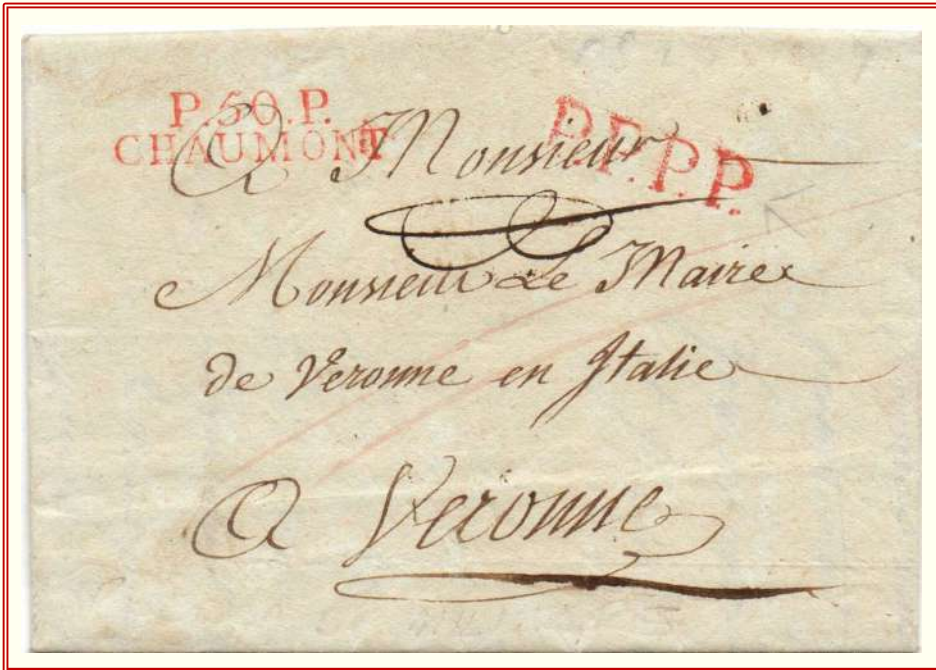 P.50.P.
CHAUMONT
P.P.P.P.
A Monsieur
Monsieur Le Maire
de Veronne en Italie
A Veronne